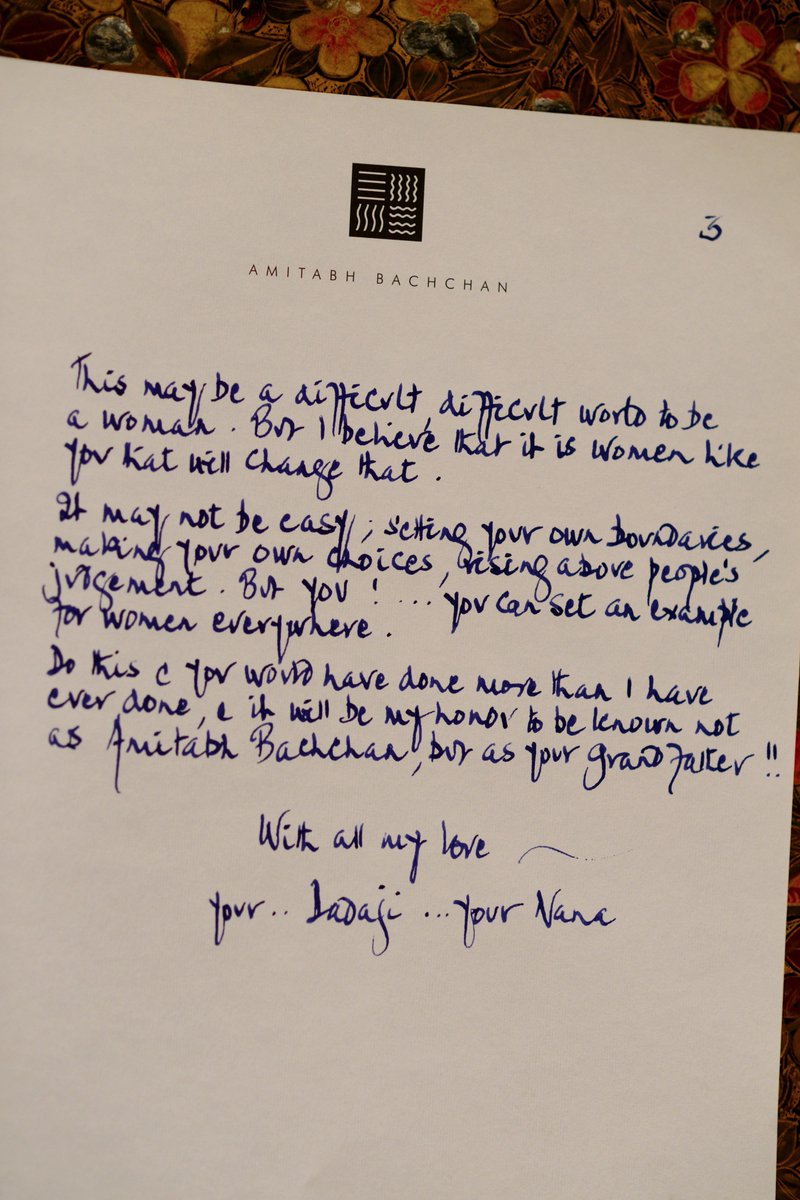 3
AMITABH BACHCHAN
This may be a difficult, difficult world to be
a woman. But I believe that it is women like
you that will change that.
It may not be easy, setting your own boundaries,
making your own choices, rising above people's
judgement. But you! ... you can set an example
for women everywhere.
Do this & you would have done more than I have
ever done, & it will be my honor to be known not
as Amitabh Bachchan, but as your grandfather!!
With all my love
your.. Dadaji ...your Nana